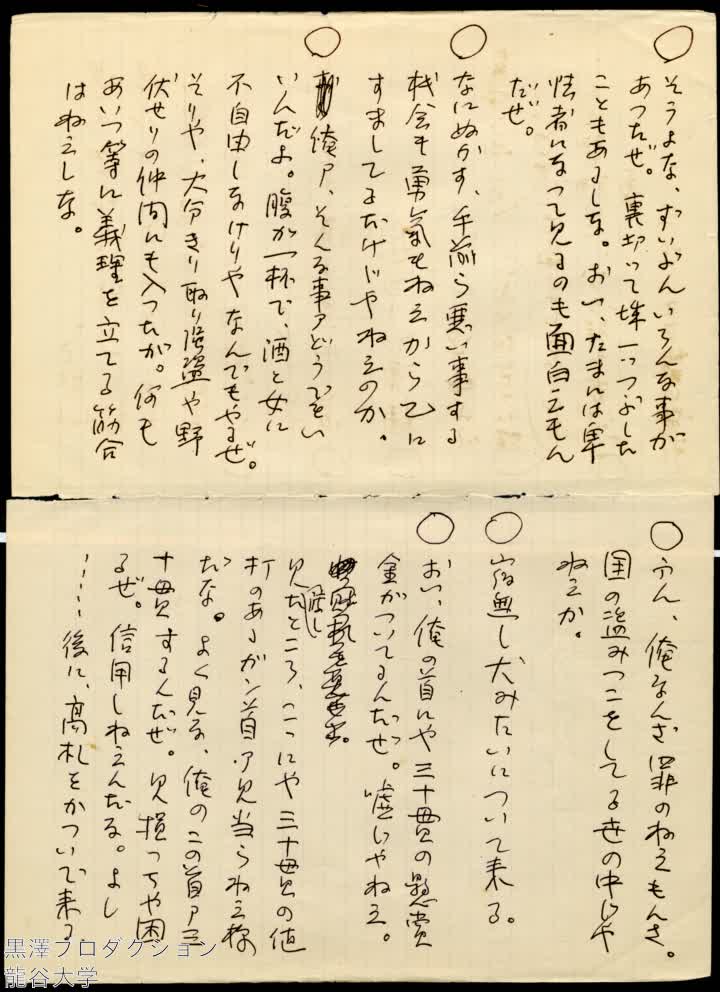 ○
そうよな、ずいぶんいろんな事が
あつたぜ。裏切つて城一つつぶした
こともあるしな。おい、たまには卑
怯者になつて見るのも面白えもん
だぜ。
○
なにぬかす、手前ら悪い事する
機会も勇気もねえから乙に
すましてるだけじやねえのか。
○
俺ァ、そんな事アどうでもい
いんだよ。腹が一杯で、酒と女に
不自由しなけりやなんでもやるぜ。
そりや、大分きり取り強盗や野
伏せりの仲間にも入つたが。何も
あいつ等に義理を立てる筋合
はねえしな。
○
ふん、俺なんざ罪のねえもんさ。
国の盗みつこをしてる世の中じや
ねえか。
○
宿無し犬みたいについて来る。
○
おい、俺の首にや三十貫の懸賞
金がついてるんだぜ。嘘じやねえ。
見たところ、こゝにや三十貫の値
打のあるガン首ァ見当らねえ様
だな。よく見な、俺のこの首ァ三
十貫するんだぜ。見損つちや困
るぜ。信用しねえんだな。よし
……後に、高札をかついで来る
黒澤プロダクション
龍谷大学